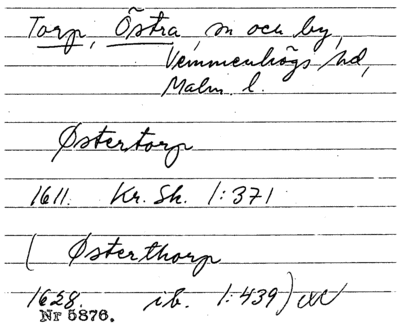 Torp, Östra, sn och by,
Vemmenhögs hd,
Malm. l.
Østertorp
1611. Kr. Sk. 1:371
( Østerthorp
1628. ib. 1:439)
Nr 5876.